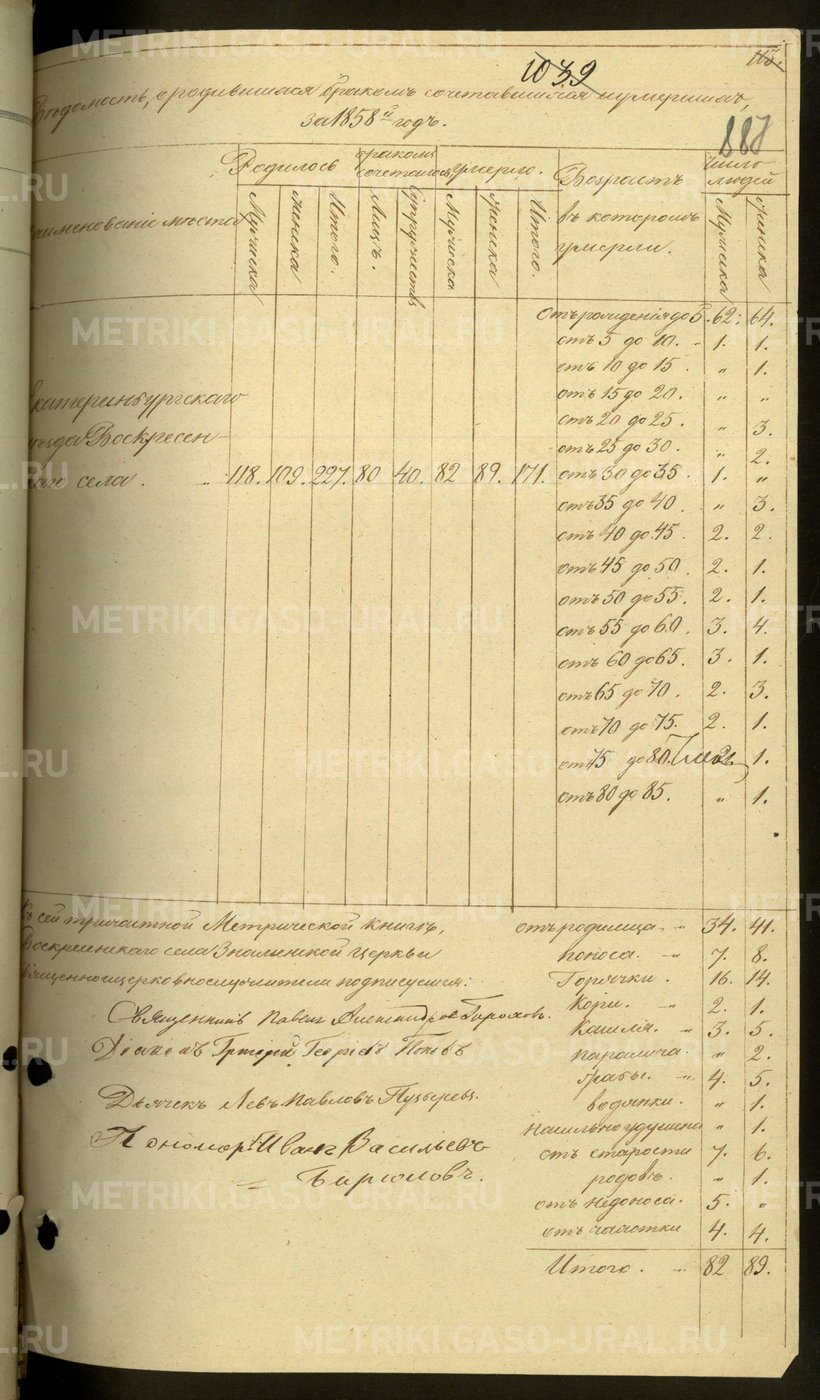 1039
113.
Вѣдомость, о родившихся бракомъ сочетавшихся и умершихъ,
за 1858й годъ.
888
Родилось
бракомъ сочеталось
умерло.
Возрастъ
число людей
Наименованіе мѣста
Мужеска
Женска
Итого.
Лицъ.
Супружествъ
Мужеска
Женска
Итого.
въ которомъ
умерли.
Мужеска
Женска
Отъ рожденія до 5. 62. 64.
отъ 5 до 10. " 1. 1.
отъ 10 до 15 " 1.
отъ 15 до 20. " "
отъ 20 до 25 " 3.
отъ 25 до 30. " 2.
Екатеринбургскаго
уѣзда Воскресен-
скаго села. 118. 109. 227. 80 40. 82 89. 171.
отъ 30 до 35. 1. "
отъ 35 до 40. " 3.
отъ 40 до 45 2. 2.
отъ 45 до 50. 2. 1.
отъ 50 до 55. 2. 1.
отъ 55 до 60. 3. 4.
отъ 60 до 65. 3. 1.
отъ 65 до 70. 2. 3.
отъ 70 до 75. 2. 1.
отъ 75 до 80. 2. 1.
отъ 80 до 85. " 1.
Къ сей тричастной Метрической книгѣ,
Воскресенскаго села Знаменской церкви
священноцерковнослужители подписуемся:
Священникъ Павелъ Александровъ
Діаконъ Григорій Георгіевъ Поповъ
Дьячекъ Левъ Павловъ
Пономарь Иванъ Васильевъ
Бирюковъ.
отъ родимца. " 34. 41.
поноса. " 7. 8.
Горячки. 16. 14.
Кори. " 2. 1.
Кашля. " 3. 5.
паралича. " 2.
грыжы. " 4. 5.
водянки. " 1.
насильно удушена " 1.
отъ старости 7. 6.
родовъ. " 1.
отъ недоноса. 5. "
отъ чахотки 4. 4.
Итого. " 82 89.
METRIKI.GASO-URAL.RU